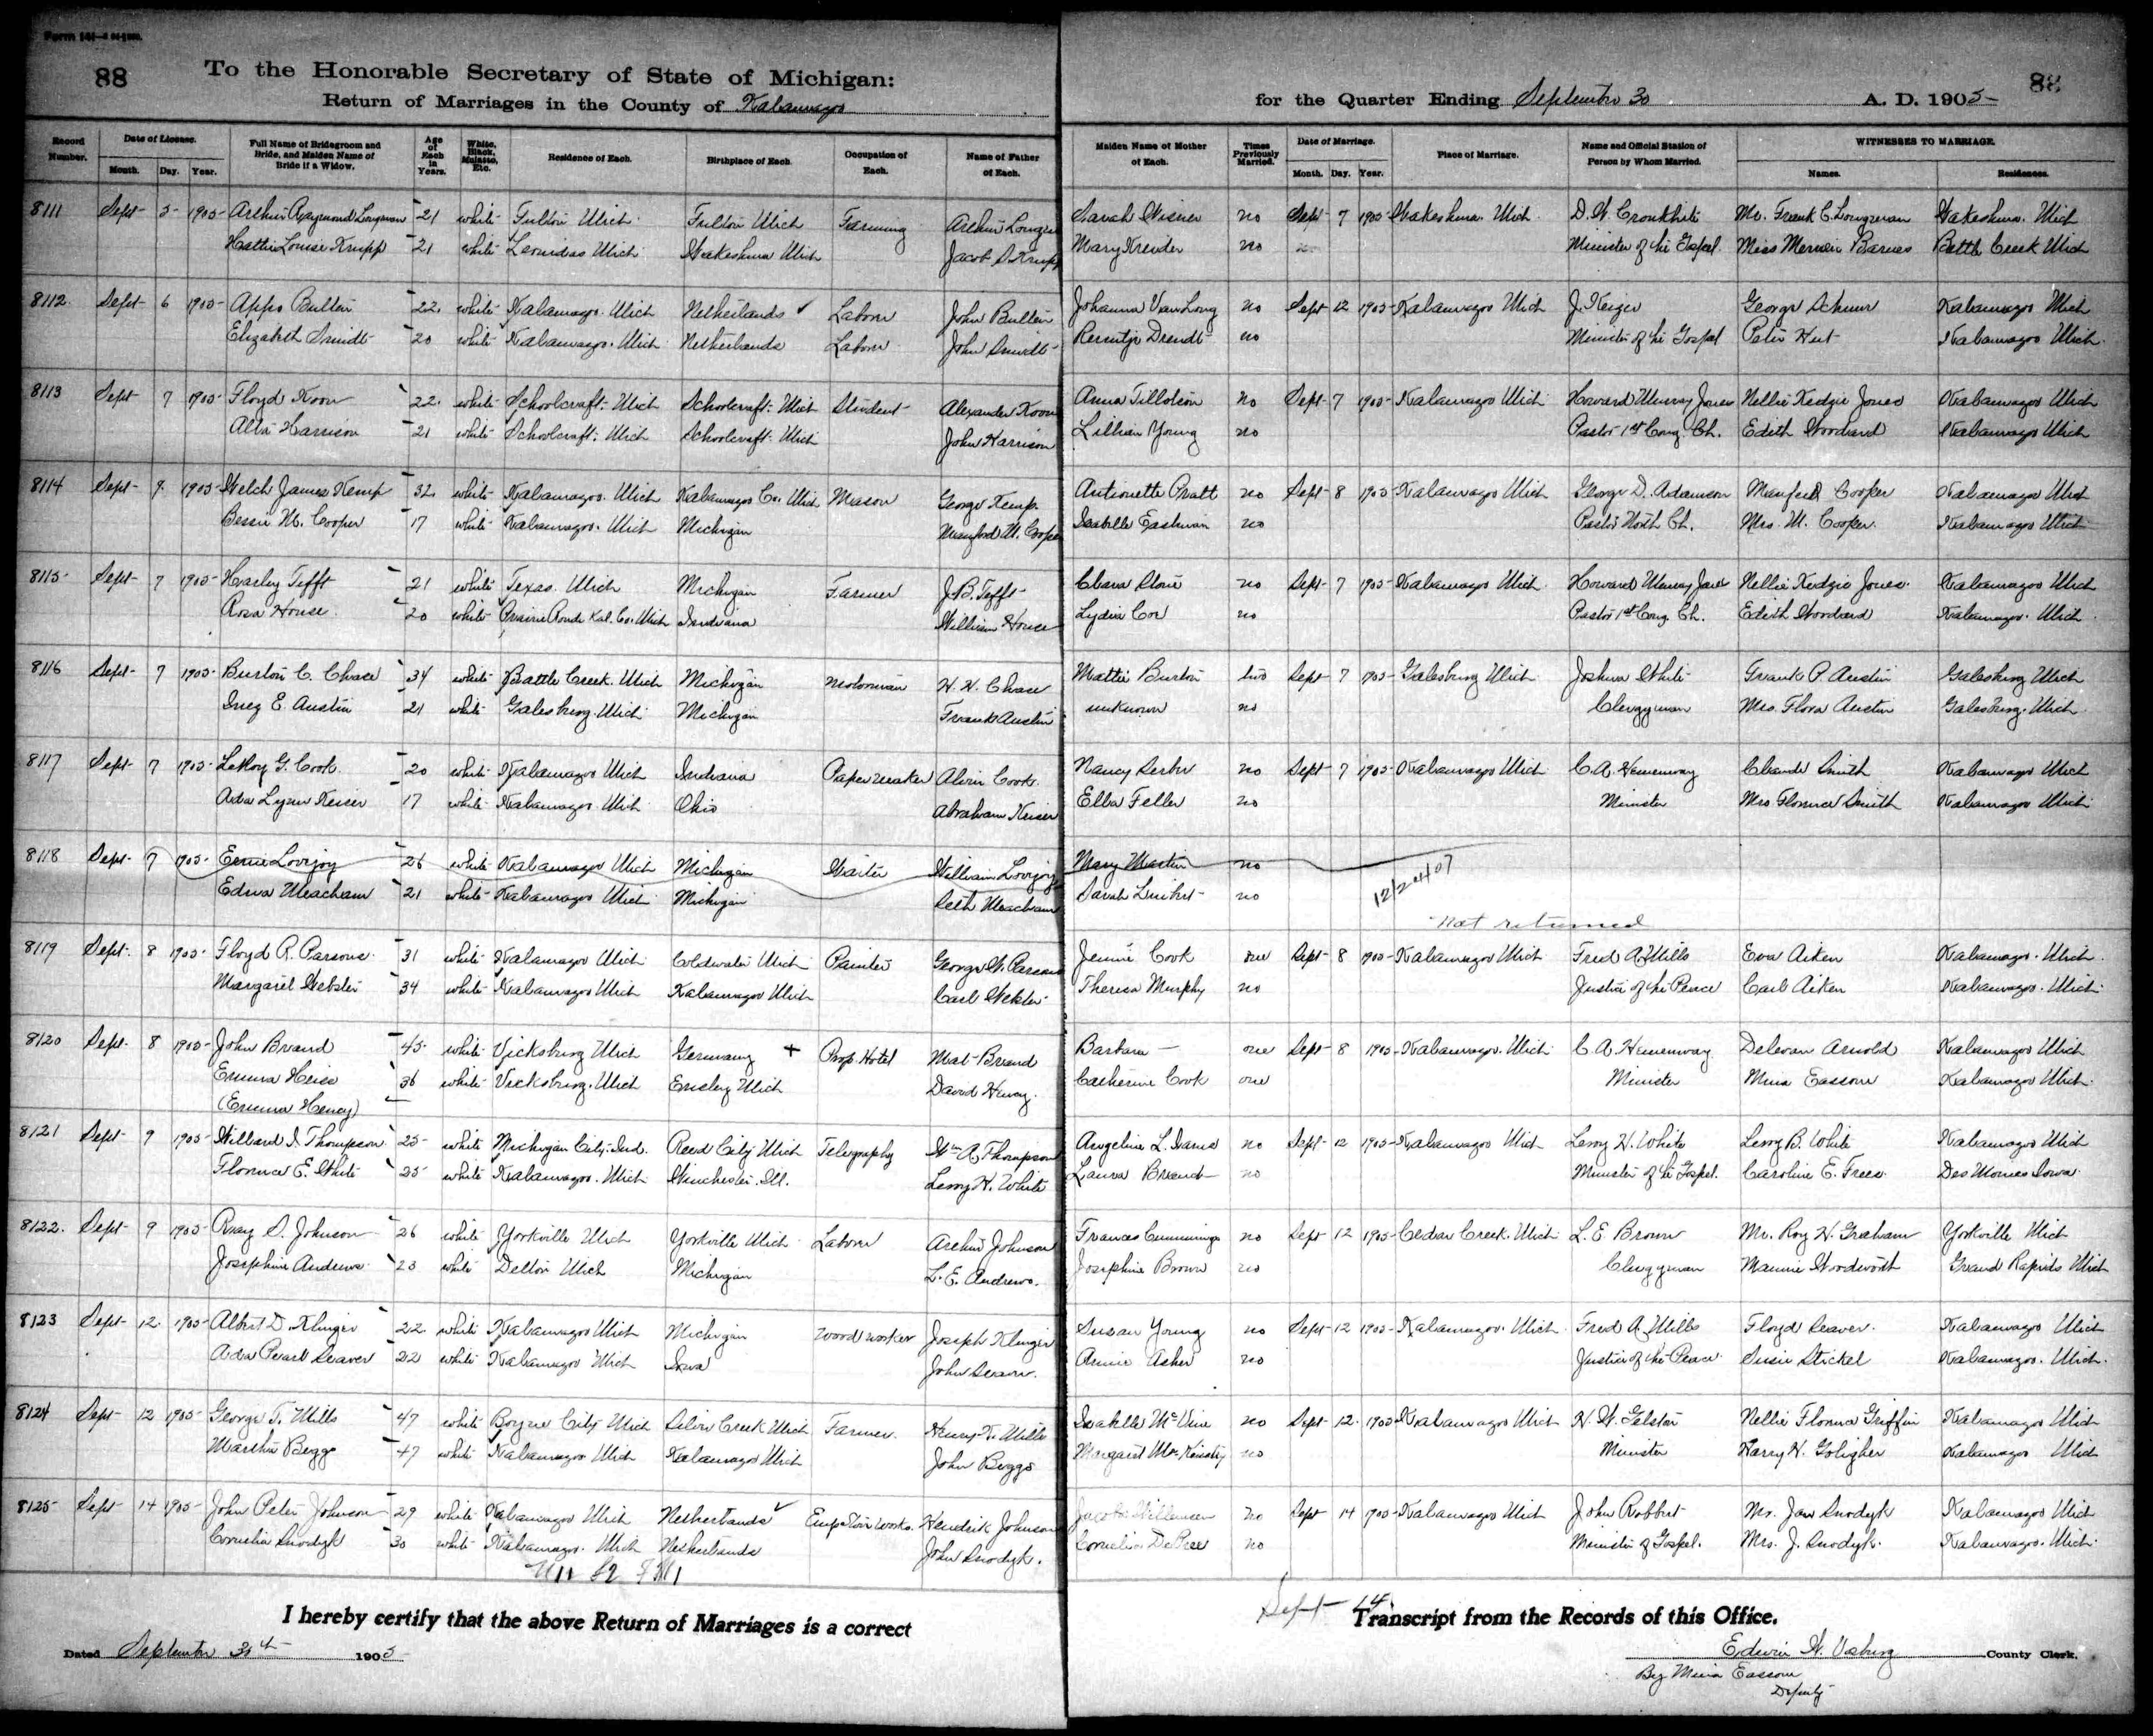 88
To the Honorable Secretary of State of Michigan:
88
Return of Marriages in the County of Kalamazoo for the Quarter Ending September 30 A. D. 1905
Record Number. Date of License. Month. Day. Year. Full Name of Bridegroom and Bride, and Maiden Name of Bride if a Widow. Age of Each in Years. White, Black, Mulatto, Etc. Residence of Each. Birthplace of Each. Occupation of Each. Name of Father of Each. Maiden Name of Mother of Each. Times Previously Married. Date of Marriage. Month. Day. Year. Place of Marriage. Name and Official Station of Person by Whom Married. WITNESSES TO MARRIAGE. Names. Residences.
8111 Sept 5 1905 Arthur Raymond Longman 21 white Fulton Mich Fulton Mich Farming Arthur Sarah Wisner no Sept 7 1905 Wakeshma Mich D. W. Cronkhite Mr. Frank C. Longman Wakeshma Mich
Hattie Louise Krupp 21 white Leonidas Mich Wakeshma Mich Jacob S Krupp Mary Kreider no Minister of the Gospel Miss Barnes Battle Creek Mich
8112 Sept 6 1905 Appo Bulten 22 white Kalamazoo Mich Netherlands Labor John Bulten Johanna no Sept 12 1905 Kalamazoo Mich J. Keizer George Kalamazoo Mich
Elizabeth Smidt 20 white Kalamazoo Mich Netherlands Labor John Smidt no Minister of the Gospel Peter Hut Kalamazoo Mich
8113 Sept 7 1905 Floyd Koon 22 white Schoolcraft Mich Schoolcraft Mich Student Alexander Koon Anna Tillotson no Sept 7 1905 Kalamazoo Mich Howard Murray Jones Nellie Kedzie Jones Kalamazoo Mich
Alta Harrison 21 white Schoolcraft Mich Schoolcraft Mich John Harrison Lillian Young no Pastor 1st Cong. Ch. Edith Woodard Kalamazoo Mich
8114 Sept 7 1905 Welch James Kemp 32 white Kalamazoo Mich Kalamazoo Co. Mich Mason George Kemp Antionette Pratt no Sept 8 1905 Kalamazoo Mich George D. Adamson Manford Cooper Kalamazoo Mich
Bessie M. Cooper 17 white Kalamazoo Mich Michigan Manford M. Cooper Isabelle Eastman no Pastor North Ch. Mrs. M. Cooper Kalamazoo Mich
8115 Sept 7 1905 Harley Tefft 21 white Texas Mich Michigan Farmer J. B. Tefft Clara Stone no Sept 7 1905 Kalamazoo Mich Howard Murray Jones Nellie Kedzie Jones Kalamazoo Mich
Rosa House 20 white Prairie Ronde Kal. Co. Mich Indiana William House Lydia Cox no Pastor 1st Cong. Ch. Edith Woodard Kalamazoo Mich
8116 Sept 7 1905 Burton C. Chase 34 white Battle Creek Mich Michigan Motorman H. H. Chase Mattie Burton two Sept 7 1905 Galesburg Mich Joshua White Frank P. Austin Galesburg Mich
Inez E. Austin 21 white Galesburg Mich Michigan Frank Austin unknown no Clergyman Mrs. Flora Austin Galesburg Mich
8117 Sept 7 1905 LeRoy G. Cook 20 white Kalamazoo Mich Indiana Paper maker Alvin Cook Nancy no Sept 7 1905 Kalamazoo Mich C. A. Hemenway Claude Smith Kalamazoo Mich
Ada Lynn Keiser 17 white Kalamazoo Mich Ohio Abraham Keiser Ella Feller no Minister Mrs Florence Smith Kalamazoo Mich
8118 Sept 7 1905 Ernie Lovejoy 26 white Kalamazoo Mich Michigan Waiter William Lovejoy Mary Martin no
Edna Meacham 21 white Kalamazoo Mich Michigan Seth Meacham Sarah no 12/24/07
not returned
8119 Sept 8 1905 Floyd R. Parsons 31 white Kalamazoo Mich Coldwater Mich Painter George W. Parsons Jennie Cook one Sept 8 1905 Kalamazoo Mich Fred A. Mills Eva Aiken Kalamazoo Mich
Margaret Webster 34 white Kalamazoo Mich Kalamazoo Mich Carl Webster Theresa Murphy no Justice of the Peace Carl Aiken Kalamazoo Mich
8120 Sept 8 1905 John Brand 45 white Vicksburg Mich Germany + Prop. Hotel Mat Brand Barbara — one Sept 8 1905 Kalamazoo Mich C. A. Hemenway Delevan Arnold Kalamazoo Mich
Emma Heiss 36 white Vicksburg Mich Ensley Mich David Henry Catherine Cook one Minister Mina Eassom Kalamazoo Mich
(Emma Henry)
8121 Sept 9 1905 Willard I. Thompson 25 white Michigan City, Ind. Reed City Mich Telegraphy Wm A. Thompson Angeline L. no Sept 12 1905 Kalamazoo Mich Leroy H. White Leroy B. White Kalamazoo Mich
Florence E. White 25 white Kalamazoo Mich Winchester, Ill. Leroy H. White Laura no Minister of the Gospel. Caroline E. Frees Des Moines Iowa
8122 Sept 9 1905 Ray S. Johnson 26 white Yorkville Mich Yorkville Mich Labor Arthur Johnson Frances Cummings no Sept 12 1905 Cedar Creek Mich L. E. Brown Mr. Roy H. Graham Yorkville Mich
Josephine Andrews 23 white Delton Mich Michigan L. E. Andrews Josephine Brown no Clergyman Mamie Woodworth Grand Rapids Mich
8123 Sept 12 1905 Albert D. Klinger 22 white Kalamazoo Mich Michigan Wood worker Joseph Klinger Susan Young no Sept 12 1905 Kalamazoo Mich Fred A. Mills Floyd Seaver Kalamazoo Mich
Ada Pearl Seaver 22 white Kalamazoo Mich Iowa John Seaver Annie Asher no Justice of the Peace Susie Stickel Kalamazoo Mich
8124 Sept 12 1905 George T. Mills 47 white Boyne City Mich Silver Creek Mich Farmer Henry Mills Isabelle no Sept 12 1905 Kalamazoo Mich H. W. Gelston Nellie Florence Griffin Kalamazoo Mich
Martha Beggs 47 white Kalamazoo Mich Kalamazoo Mich John Beggs Margaret no Minister Harry H. Goligher Kalamazoo Mich
8125 Sept 14 1905 John Peter Johnson 29 white Kalamazoo Mich Netherlands Works Hendrik Johnson no Sept 14 1905 Kalamazoo Mich John Robbert Mr. Jan Snodyk Kalamazoo Mich
Cornelia Snodyk 30 white Kalamazoo Mich Netherlands John Snodyk Cornelia DePree no Minister of Gospel. Mrs. J. Snodyk Kalamazoo Mich
Sept 14
I hereby certify that the above Return of Marriages is a correct Transcript from the Records of this Office.
Dated September 30th 1905
Edwin W. Vosburg County Clerk.
By Mina Eassom
Deputy